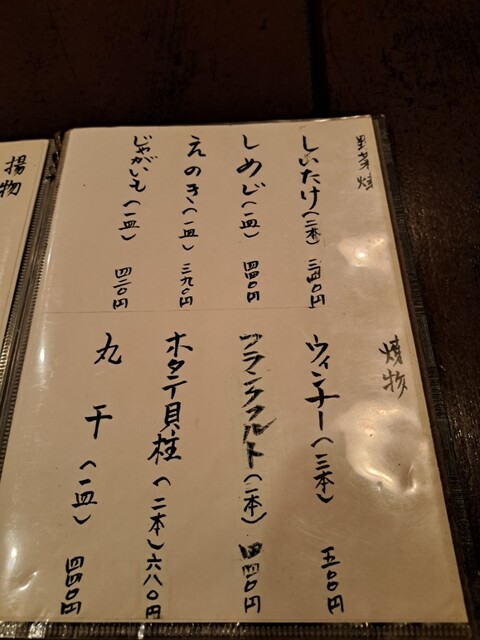 野菜焼
しいたけ(二本) 三四〇円
しめじ(一皿) 四四〇円
えのき(一皿) 三九〇円
じゃがいも(一皿) 四二〇円
焼物
ウィンナー(三本) 五〇〇円
フランクフルト(一本) 四四〇円
ホタテ貝柱(二本) 六八〇円
丸干(一皿) 四四〇円
揚物